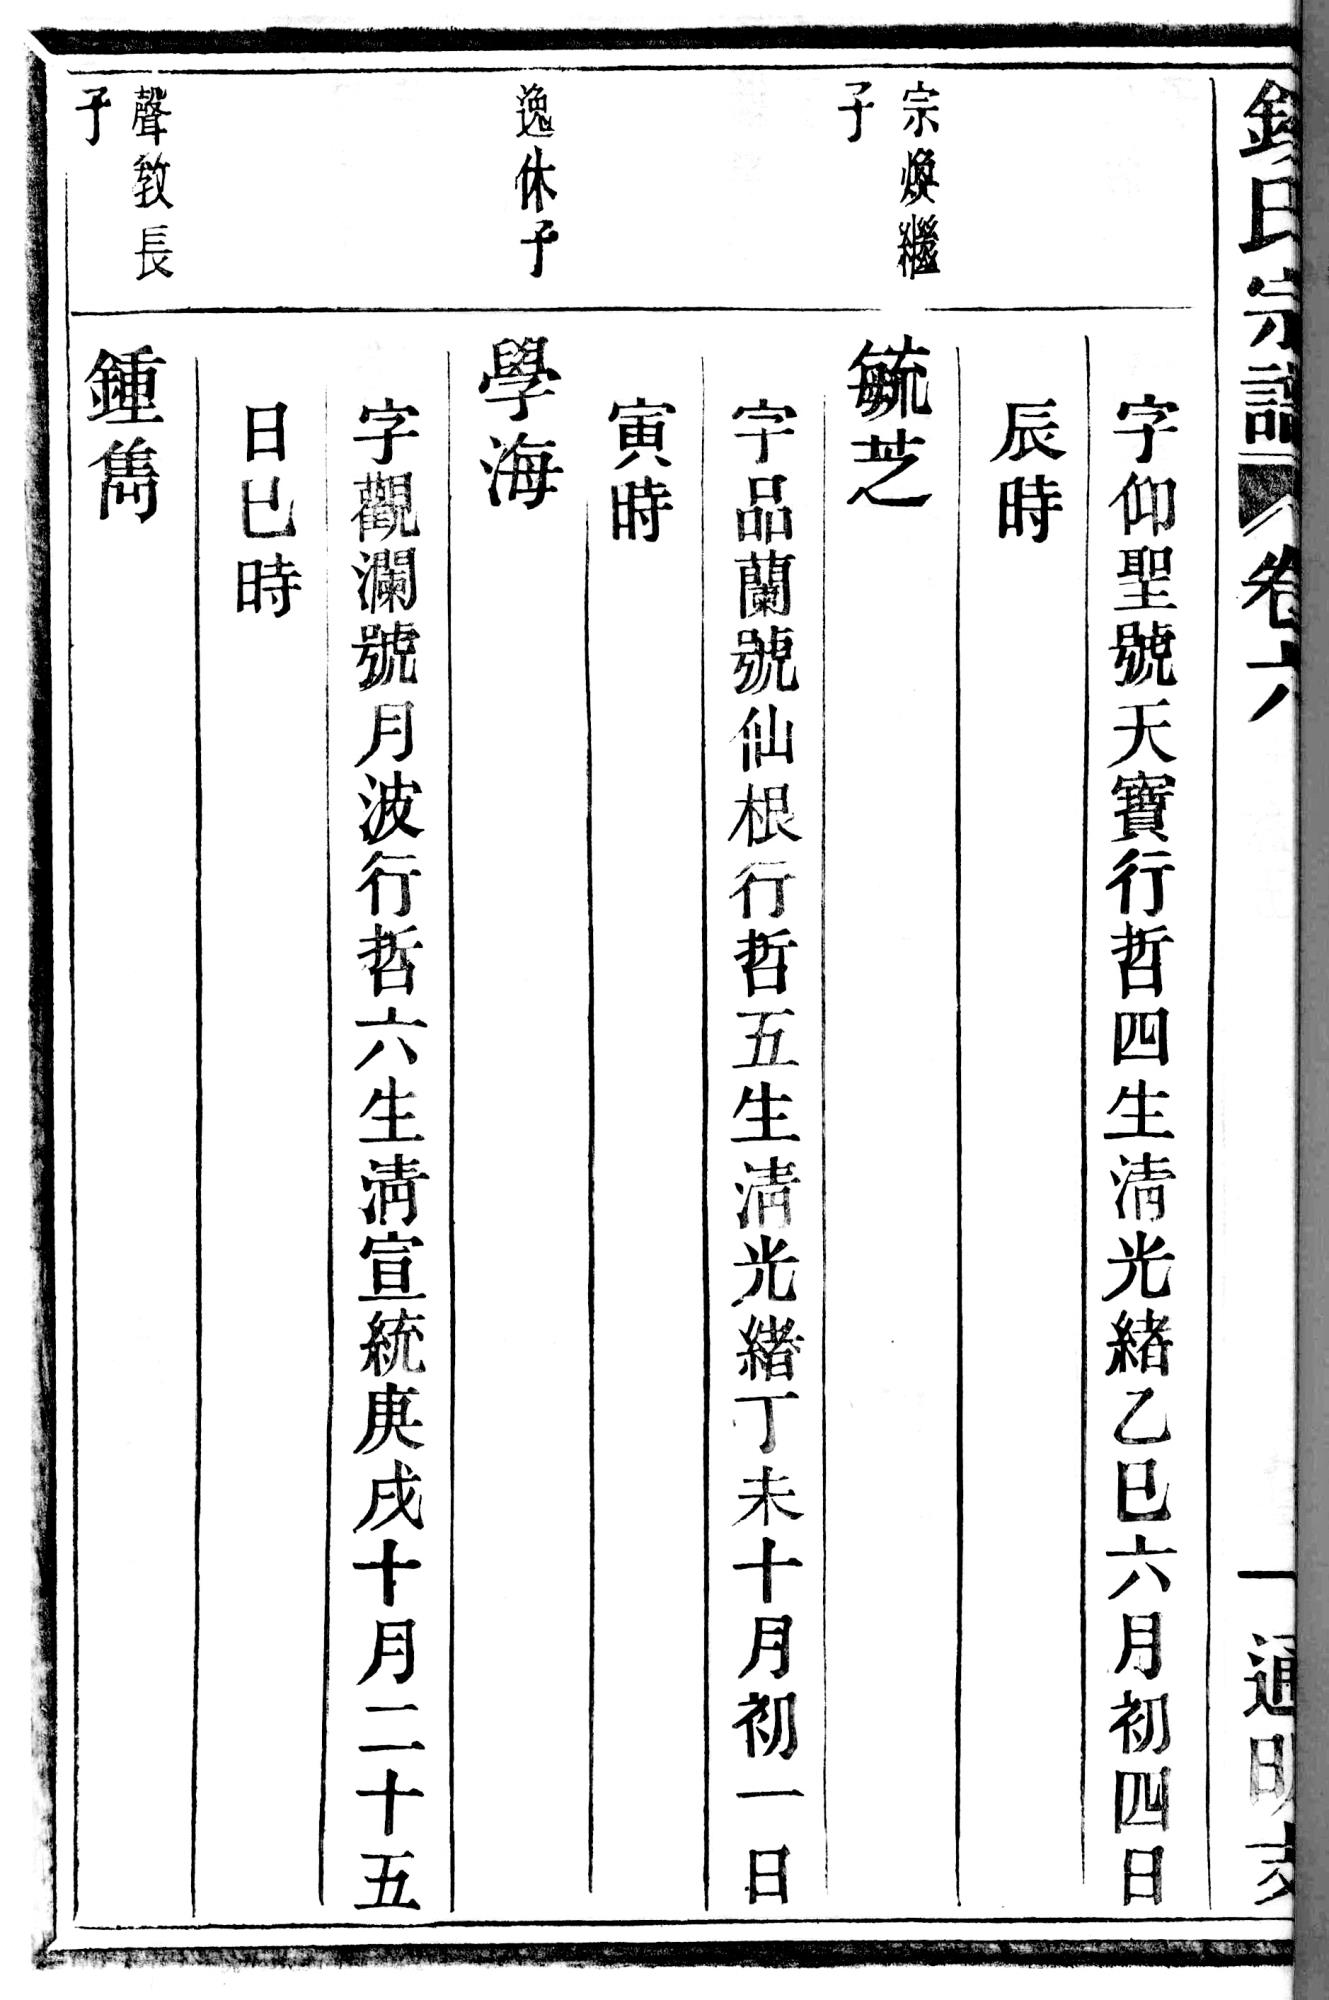 氏宗譜
卷六
一
通明支
字仰聖號天寶行哲四生清光緒乙巳六月初四日
辰時
宗煥繼
子
毓芝
字品蘭號仙根行哲五生清光緒丁未十月初一日
寅時
逸休子
學海
字觀瀾號月波行哲六生清宣統庚戌十月二十五
日巳時
聲敎長
子
鍾雋